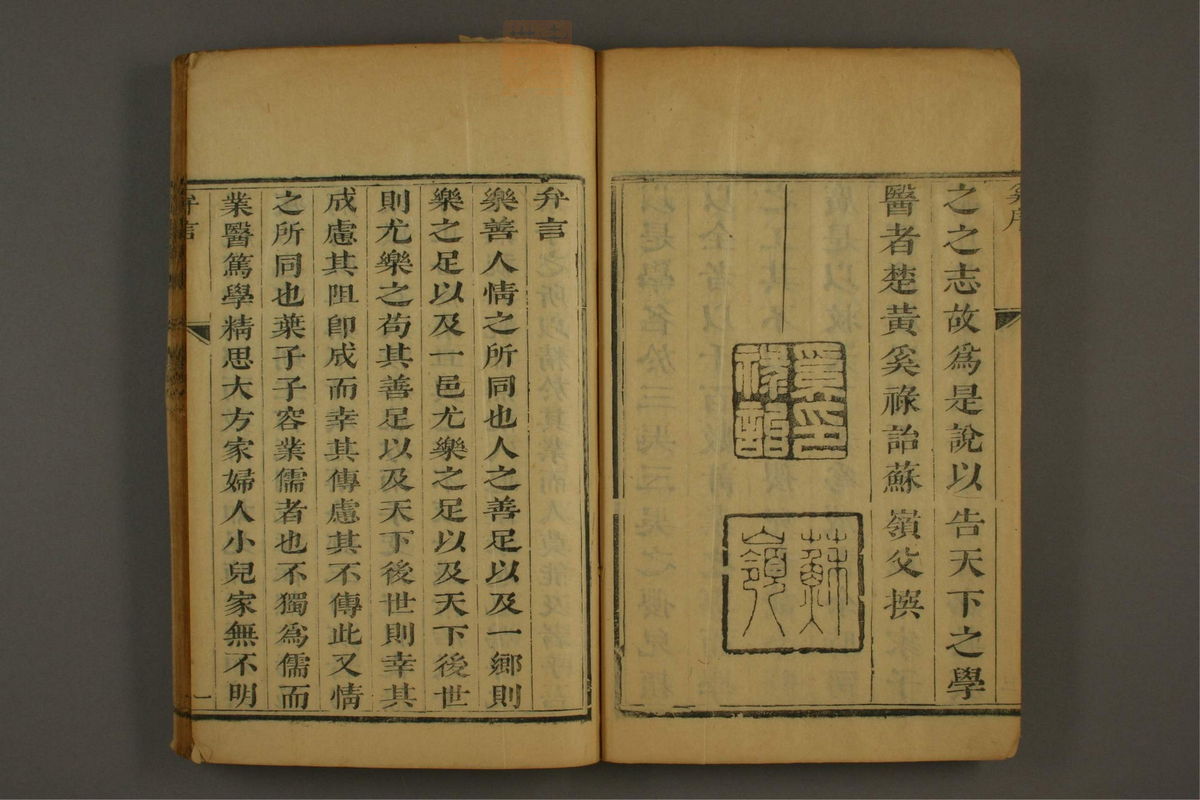 奚序
之之志故爲是說以告天下之學
醫者楚黃奚祿詒蘇嶺父撰
奚印
祿詒
蘇嶺
弁言
樂善人情之所同也人之善足以及一鄉則
樂之足以及一邑尤樂之足以及天下後世
則尤樂之苟其善足以及天下後世則幸其
成慮其阻卽成而幸其傳慮其不傳此又情
之所同也葉子子容業儒者也不獨爲儒而
業醫篤學精思大方家婦人小兒家無不明
弁言
一